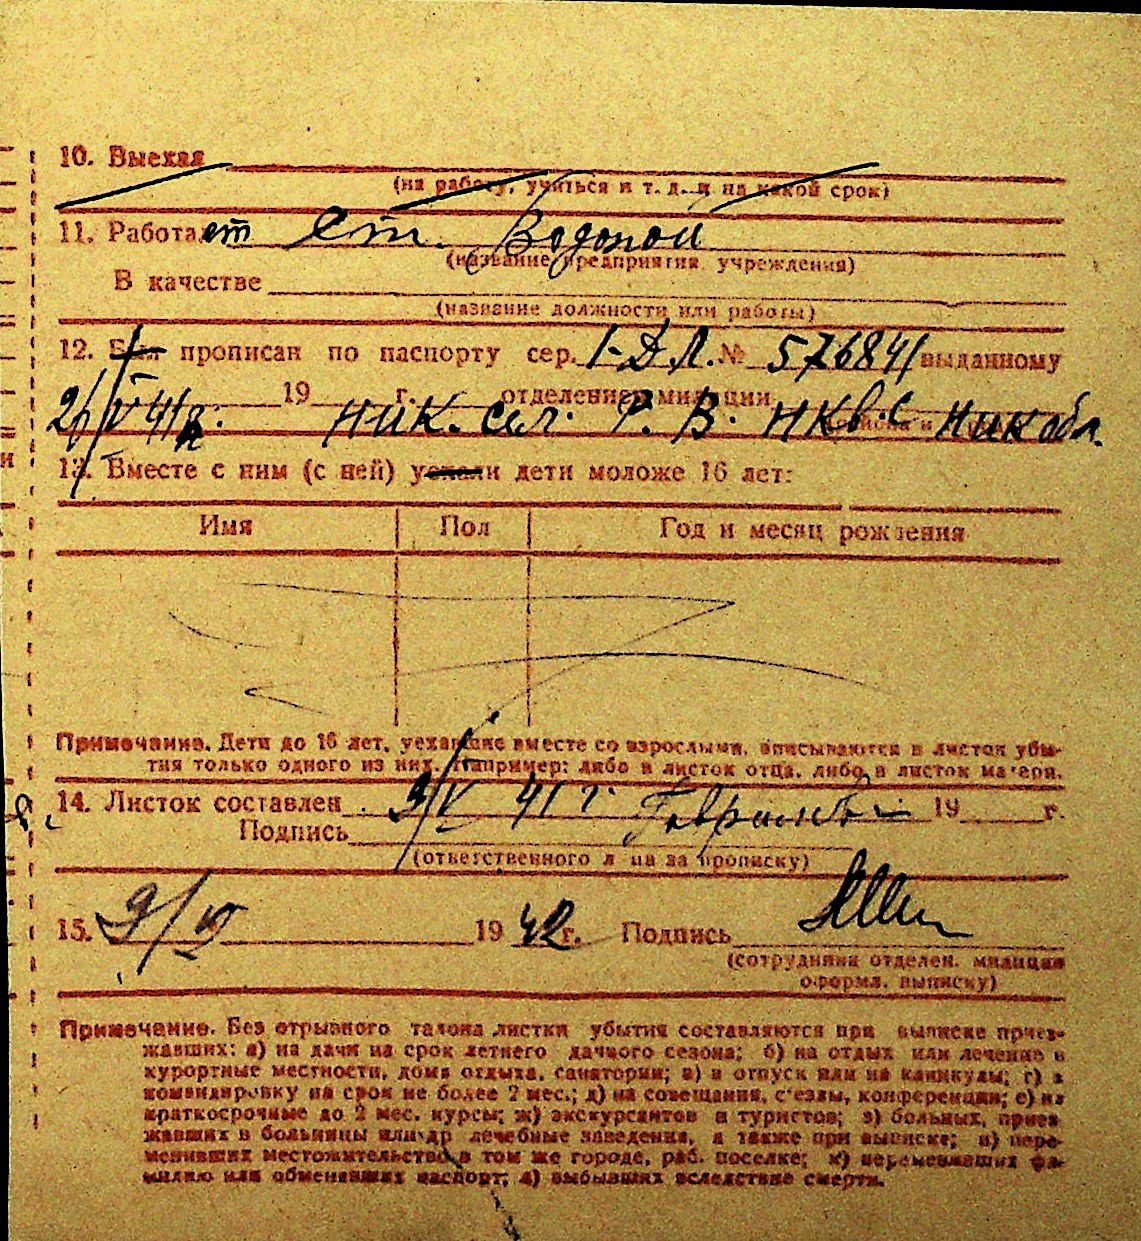 10. Выехал
(на работу, учиться и т. д. и на какой срок)
11. Работает ст. Водопой
(название предприятия учреждения)
В качестве
(название должности или работы)
12. Был прописан по паспорту сер. I-ДЛ. № 576841 выданному
19 г. отделением милиции
2/V 41 г. Ник. сел. Р. В. НКВС Ник обл.
13. Вместе с ним (с ней) уехали дети моложе 16 лет:
Имя Пол Год и месяц рождения
Примечание. Дети до 16 лет, уехавшие вместе со взрослыми, вписываются в листок убы-
тия только одного из них. Например: либо в листок отца, либо в листок матери.
14. Листок составлен 3/V 41 г. 19 г.
Подпись
(ответственного лица за прописку)
15. 9/VI 1942 г. Подпись
(сотрудника отделен. милиции
оформл. выписку)
Примечание. Без отрывного талона листки убытия составляются при выписке приез-
жавших: а) на дачи на срок летнего дачного сезона; б) на отдых или лечение в
курортные местности, дома отдыха, санатории; в) в отпуск или на каникулы; г) в
командировку на срок не более 2 мес.; д) на совещания, съезды, конференции; е) на
краткосрочные до 2 мес. курсы; ж) экскурсантов и туристов; з) больных, приез-
жавших в больницы или др лечебные заведения, а также при выписке; и) пере-
менивших местожительство в том же городе, раб. поселке; к) переменивших фа-
милию или обменявших паспорт; л) выбывших вследствие смерти.